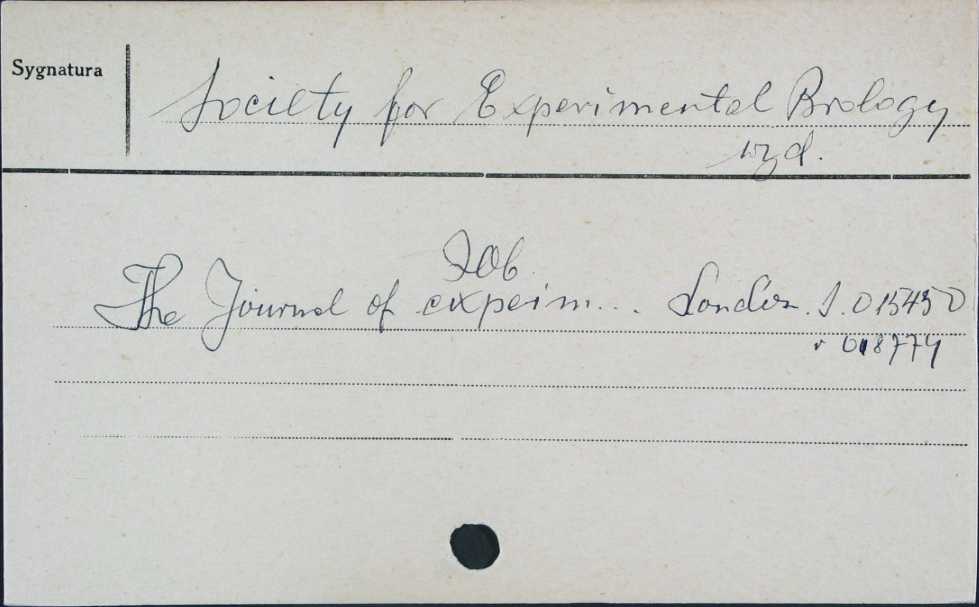 Sygnatura
Society for Experimental Biology
wyd.
Zob.
The Journal of expeim... London. S. 015450
v 618774